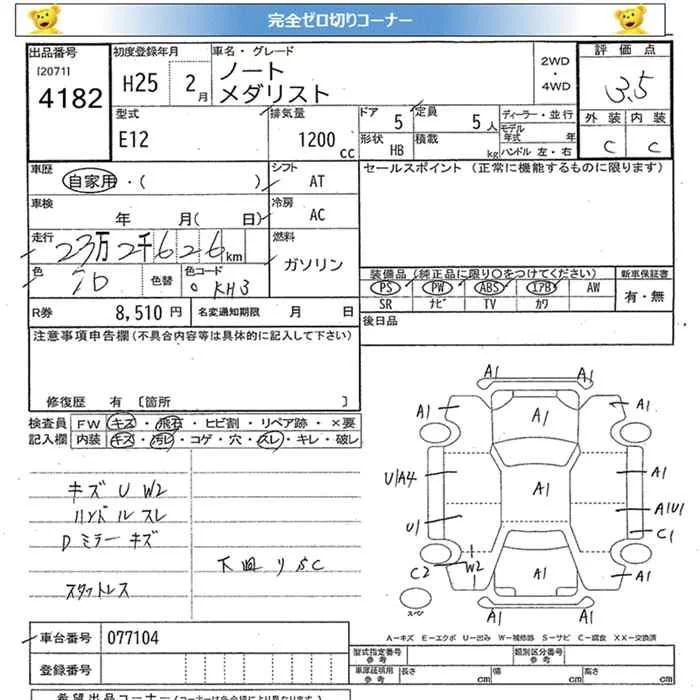 完全ゼロ切りコーナー
出品番号
[2071]
4182
初度登録年月
H25 2月
車名・グレード
ノート
メダリスト
2WD
・
4WD
評価点
3.5
外装 内装
C C
型式
E12
排気量
1200cc
ドア 5
定員 5人
形状 HB
積載 kg
ディーラー・並行
モデル年式 年
ハンドル 左・右
車歴
自家用・( )
シフト
AT
車検
年 月( 日)
冷房
AC
走行
23万2千626km
燃料
ガソリン
色
色替
色コード
KH3
R券
8,510円
名変通知期限 月 日
セールスポイント (正常に機能するものに限ります)
装備品(純正品に限り○をつけてください)
新車保証書
PS PW ABS エアB AW
SR ナビ TV カワ
有・無
後日品
注意事項申告欄(不具合内容等は具体的に記入して下さい)
修復歴 有 〔箇所 〕
検査員
記入欄
FW キズ・飛石・ヒビ割・リペア跡・×要
内装 キズ・汚レ・コゲ・穴・スレ・キレ・破レ
キズ U W2
ハンドルスレ
Dミラーキズ
スタットレス
A1 A1
A1 A1 A1
U/A4 A1 A1
U1 A1U1
C1
C2 W2 A1 A1
スペア
A1 A1
A−キズ E−エクボ U−凹み W−補修跡 S−サビ C−腐食 XX−交換済
車台番号 077104
登録番号
型式指定番号
参考
類別区分番号
参考
車庫証明用
参考
長さ cm 幅 cm 高さ cm
希望出品コーナー